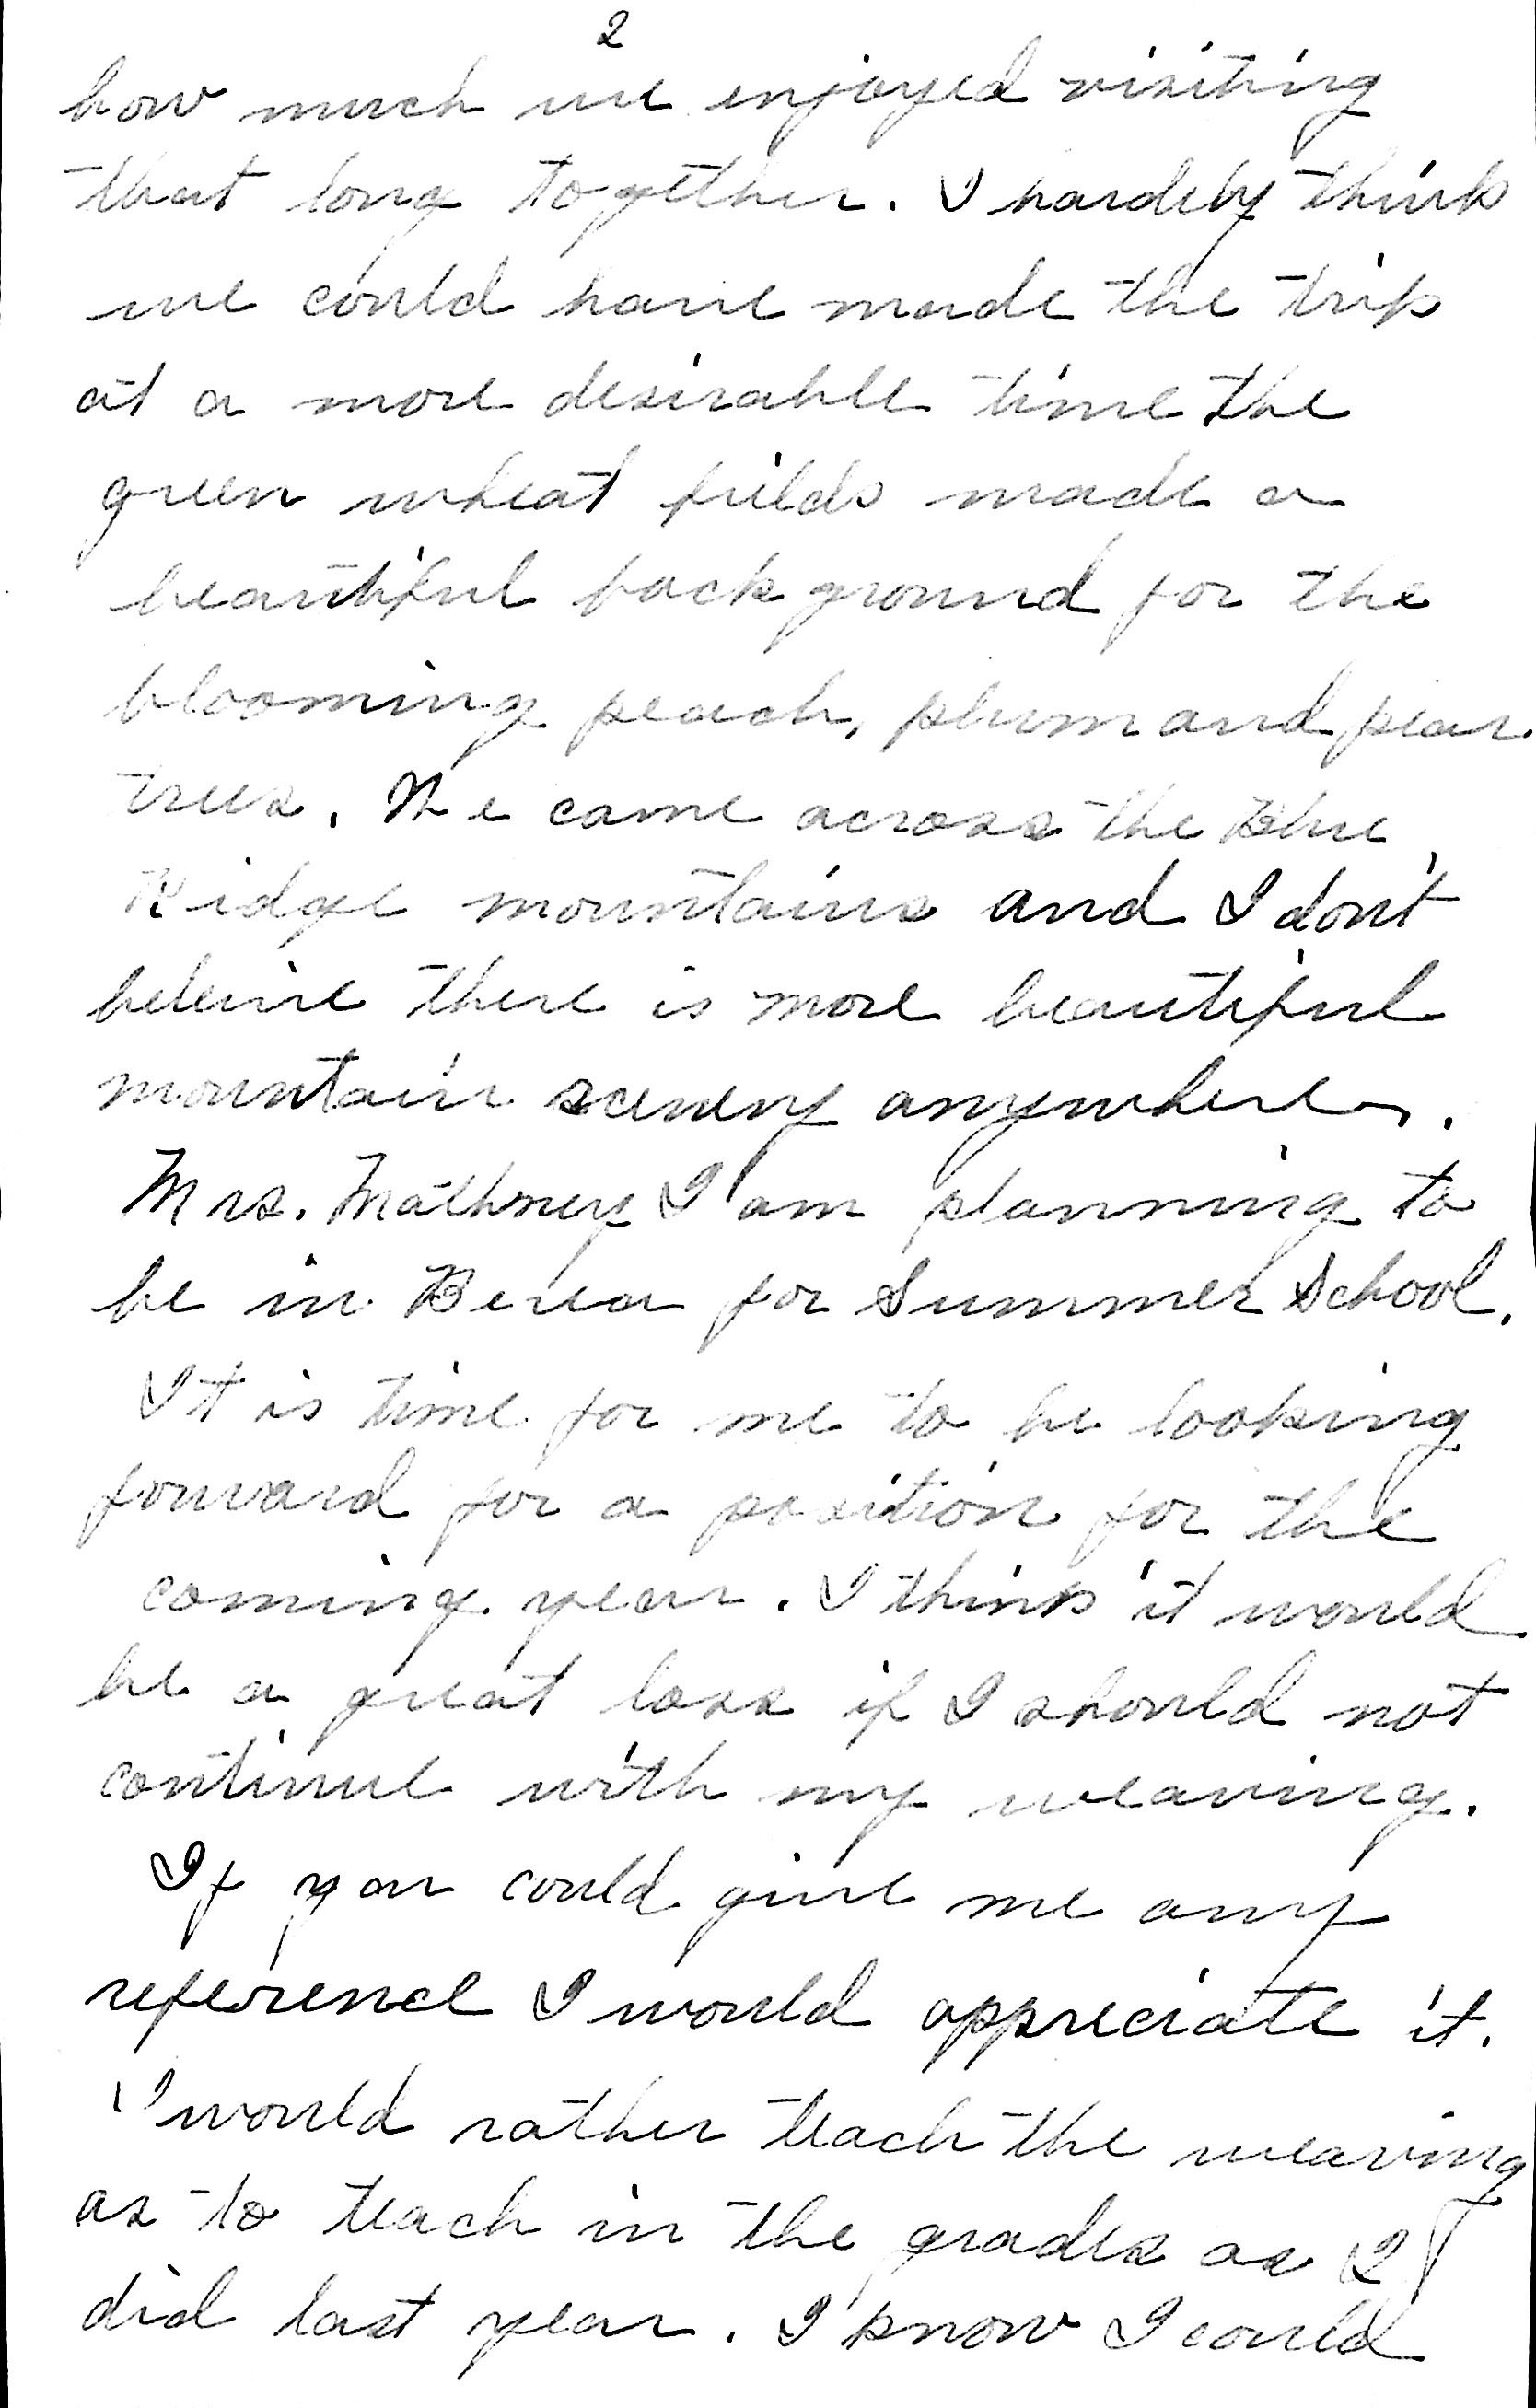 2
how much we enjoyed visiting
that long together. I hardely think
we could have made the trip
at a more desirable time the
green wheat fields made a
beautiful back ground for the
blooming peach, plum and pear
trees. We came across the Blue
Ridge mountains and I don't
beleive there is more beautiful
mountain scenery anywhere.
Mrs. Mathney I am planning to
be in Berea for Summer School.
It is time for me to be looking
forward for a position for the
coming year. I think it would
be a great loss if I should not
continue with my weaving.
If you could give me any
reference I would appreciate it.
I would rather teach the weaving
as to teach in the grades as I
did last year. I know I could